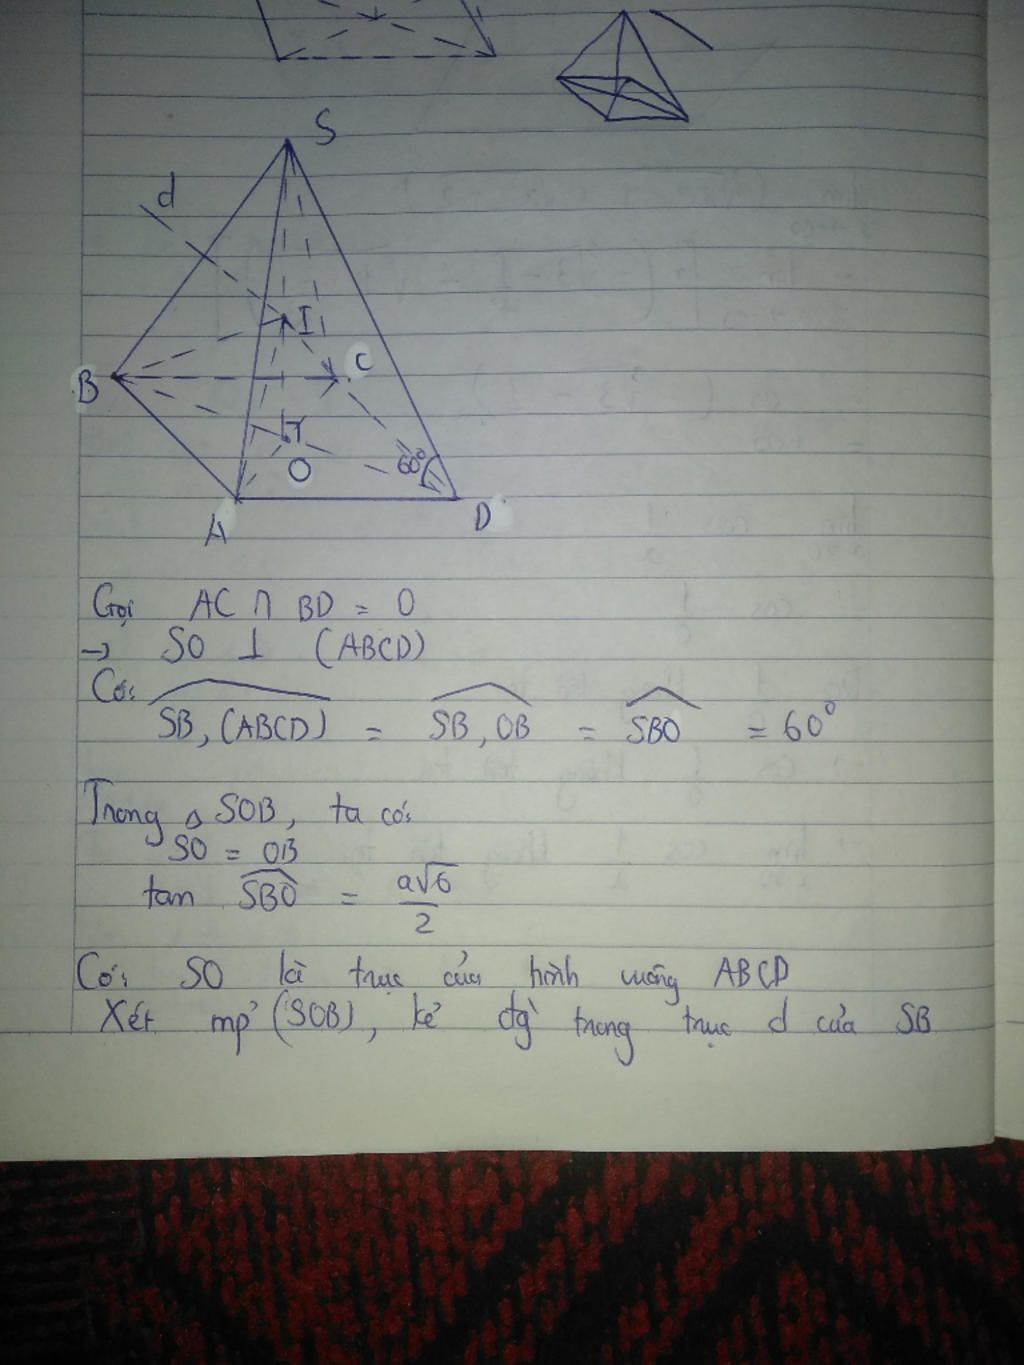 S
d
I
B
C
O
60°
A
D
Gọi AC ∩ BD = O
→ SO ⊥ (ABCD)
Có:
SB, (ABCD) = SB, OB = SBO = 60°
Trong △ SOB, ta có:
SO = OB
tan SBO = a√6
2
Có: SO là trục của hình vuông ABCD
Xét mp (SOB), kẻ đg trung trục d của SB